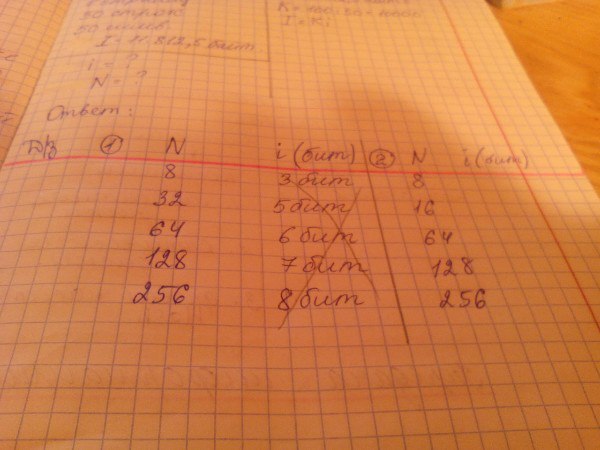 30 строк
50 симв
I = 11 812,5 байт
i = ?
N = ?
I = Ki
Ответ:
Д/з ① N i (бит) ② N i (бит)
8 3 бит 8
32 5 бит 16
64 6 бит 64
128 7 бит 128
256 8 бит 256